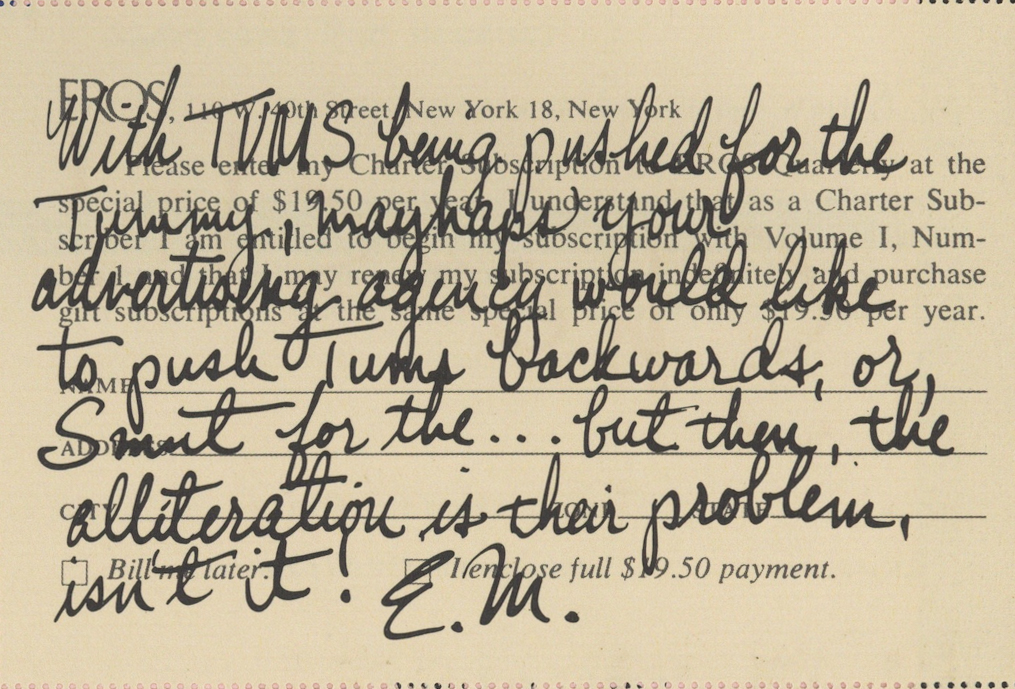 EROS, 110 W. 40th Street, New York 18, New York
Please enter my Charter Subscription to EROS Quarterly at the
special price of $19.50 per year. I understand that as a Charter Sub-
scriber I am entitled to begin my subscription with Volume I, Num-
ber 1 and that I may renew my subscription indefinitely and purchase
gift subscriptions at the same special price of only $19.50 per year.
NAME
ADDRESS
CITY ZONE STATE
Bill me later. I enclose full $19.50 payment.
With TUMS being pushed for the
Tummy, mayhaps your
advertising agency would like
to push Tums backwards, or,
Smut for the... but then, the
alliteration is their problem,
isn't it! E.M.